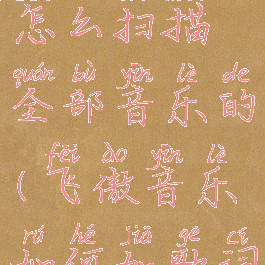 怎么扫描
quán bù yīn lè de
全部音乐的
fēi ào yīn lè
(飞傲音乐
rú hé jiā gē cí
如何加歌词